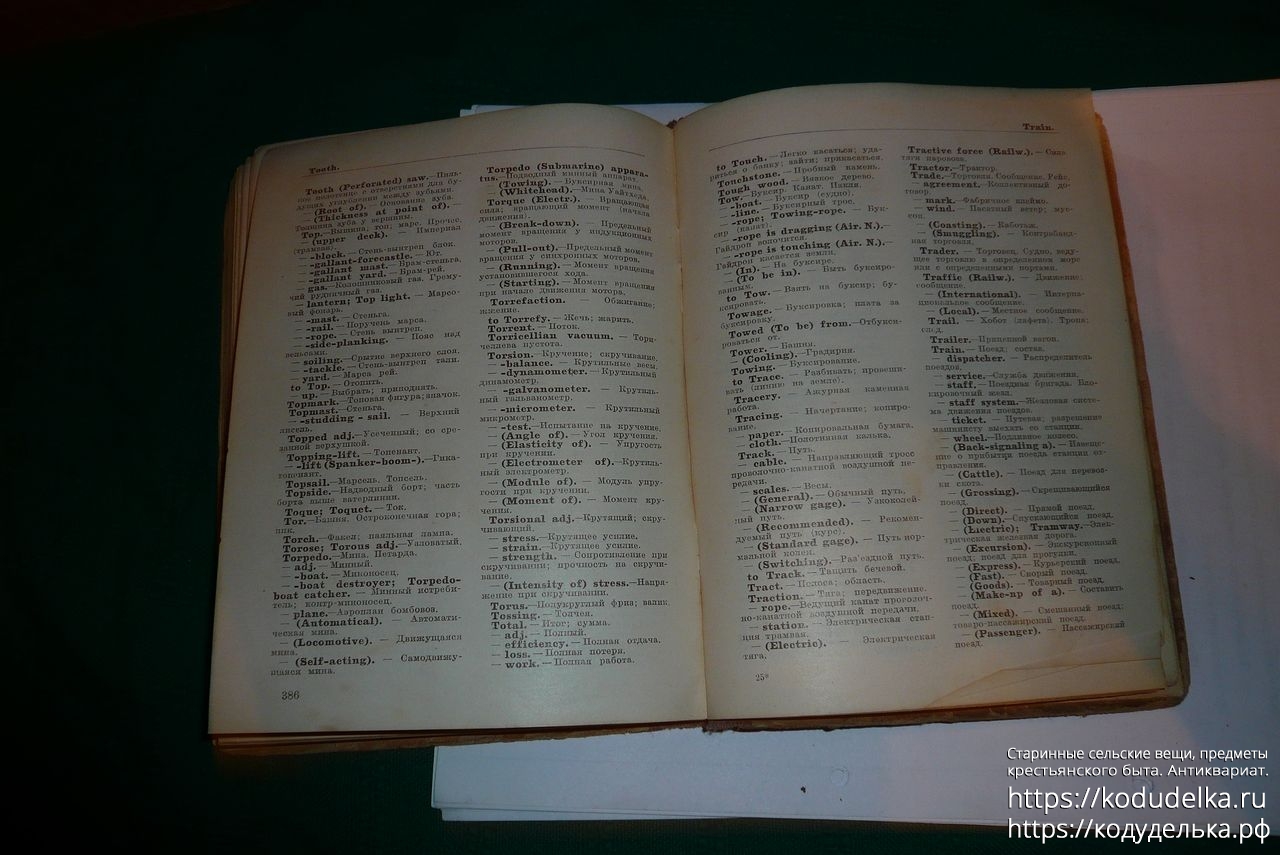 Tooth.
Tooth (Perforated) saw. — Пиль-
ное полотнище с отверстиями для бу-
дущих углублений между зубьями.
— (Root of). — Основание зуба.
— (Thickness at point of). —
Толщина зуба у вершины.
Top. — Вышина; топ; марс. Прочес.
— (upper deck). — Империал
(трамвая).
— -block. — Стень-вынтреп блок.
— -gallant-forecastle. — Ют.
— -gallant mast. — Брам-стеньга.
— -gallant yard. — Брам-рей.
— gas. — Колошниковый газ. Грему-
чий рудничный газ.
— lantern; Top light. — Марсо-
вый фонарь.
— -mast. — Стеньга.
— -rail. — Поручень марса.
— -rope. — Стень вынтреп.
— -side-planking. — Пояс над
вельсами.
— soiling. — Снятие верхнего слоя.
— -tackle. — Стень-вынтреп тали.
— yard. — Марса рей.
to Top. — Отопить.
— up. — Выбрать; приподнять.
Topmark. — Топовая фигура; значок.
Topmast. — Стеньга.
— -studding - sail. — Верхний
лисель.
Topped adj. — Усеченный; со сре-
занной верхушкой.
Topping-lift. — Топенант.
— -lift (Spanker-boom-). — Гика-
топенант.
Topsail. — Марсель. Топсель.
Topside. — Надводный борт; часть
борта выше ватерлинии.
Toque; Toquet. — Ток.
Tor. — Башня. Остроконечная гора;
пик.
Torch. — Факел; паяльная лампа.
Torose; Torous adj. — Узловатый.
Torpedo. — Мина. Петарда.
— adj. — Минный.
— -boat. — Миноносец.
— -boat destroyer; Torpedo-
boat catcher. — Минный истреби-
тель; контр-миноносец.
— plane. — Аэроплан бомбовоз.
— (Automatical). — Автомати-
ческая мина.
— (Locomotive). — Движущаяся
мина.
— (Self-acting). — Самодвижу-
щаяся мина.
386
Torpedo (Submarine) appara-
tus. — Подводный минный аппарат.
— (Towing). — Буксирная мина.
— (Whitehead). — Мина Уайтхеда.
Torque (Electr.). — Вращающая
сила; вращающий момент (начала
движения).
— (Break-down). — Предельный
момент вращения у индукционных
моторов.
— (Pull-out). — Предельный момент
вращения у синхронных моторов.
— (Running). — Момент вращения
установившегося хода.
— (Starting). — Момент вращения
при начале движения мотора.
Torrefaction. — Обжигание;
жжение.
to Torrefy. — Жечь; жарить.
Torrent. — Поток.
Torricellian vacuum. — Тори-
челлева пустота.
Torsion. — Кручение; скручивание.
— -balance. — Крутильные весы.
— -dynamometer. — Крутильный
динамометр.
— -galvanometer. — Крутиль-
ный гальванометр.
— -micrometer. — Крутильный
микрометр.
— -test. — Испытание на кручение.
— (Angle of). — Угол кручения.
— (Elasticity of). — Упругость
при кручении.
— (Electrometer of). — Крутиль-
ный электрометр.
— (Module of). — Модуль упру-
гости при кручении.
— (Moment of). — Момент кру-
чения.
Torsional adj. — Крутящий; скру-
чивающий.
— stress. — Крутящее усилие.
— strain. — Крутящее усилие.
— strength. — Сопротивление при
скручивании; прочность на скручи-
вание.
— (Intensity of) stress. — Напря-
жение при скручивании.
Torus. — Полукруглый фриз; валик.
Tossing. — Толчея.
Total. — Итог; сумма.
— adj. — Полный.
— efficiency. — Полная отдача.
— loss. — Полная потеря.
— work. — Полная работа.
Train.
to Touch. — Легко касаться; уда-
риться о банку; зайти; прикасаться.
Touchstone. — Пробный камень.
Tough wood. — Вязкое дерево.
Tow. — Буксир. Канат. Пакля.
— -boat. — Буксир (судно).
— -line. — Буксирный трос.
— -rope; Towing-rope. — Бук-
сир (канат).
— -rope is dragging (Air. N.). —
Гайдроп волочится.
— -rope is touching (Air. N.). —
Гайдроп касается земли.
— (In). — На буксире.
— (To be in). — Быть буксиро-
ванным.
to Tow. — Взять на буксир; бу-
ксировать.
Towage. — Буксировка; плата за
буксировку.
Towed (To be) from. — Отбукси-
роваться от.
Tower. — Башня.
— (Cooling). — Градирня.
Towing. — Буксирование.
to Trace. — Разбивать; провеши-
вать (линию на земле).
Tracery. — Ажурная каменная
работа.
Tracing. — Начертание; копиро-
вание.
— paper. — Копировальная бумага.
— cloth. — Полотняная калька.
Track. — Путь.
— cable. — Направляющий тросс
проволочно-канатной воздушной пе-
редачи.
— scales. — Весы.
— (General). — Обычный путь.
— (Narrow gage). — Узкоколей-
ный путь.
— (Recommended). — Рекомен-
дуемый путь (курс).
— (Standard gage). — Путь нор-
мальной колеи.
— (Switching). — Раз'ездной путь.
to Track. — Тащить бечевой.
Tract. — Полоса; область.
Traction. — Тяга; передвижение.
— rope. — Ведущий канат проволоч-
но-канатной воздушной передачи.
— station. — Электрическая стан-
ция трамвая.
— (Electric). — Электрическая
тяга.
25*
Tractive force (Railw.). — Сила
тяги паровоза.
Tractor. — Трактор.
Trade. — Торговля. Сообщение. Рейс.
— agreement. — Коллективный до-
говор.
— mark. — Фабричное клеймо.
— wind. — Пасатный ветер; мус-
сон.
— (Coasting). — Каботаж.
— (Smuggling). — Контрабанд-
ная торговля.
Trader. — Торговец. Судно, веду-
щее торговлю в определенном море
или с определенными портами.
Traffic (Railw.). — Движение;
сообщение.
— (International). — Интерна-
циональное сообщение.
— (Local). — Местное сообщение.
Trail. — Хобот (лафета). Тропа;
след.
Trailer. — Прицепной вагон.
Train. — Поезд; состав.
— dispatcher. — Распределитель
поездов.
— service. — Служба движения.
— staff. — Поездная бригада. Бло-
кировочный жезл.
— staff system. — Жезловая систе-
ма движения поездов.
— ticket. — Путевая; разрешение
машинисту выехать со станции.
— wheel. — Подливное колесо.
— (Back-signaling a). — Извеще-
ние о прибытии поезда станции от-
правления.
— (Cattle). — Поезд для перевоз-
ки скота.
— (Grossing). — Скрещивающийся
поезд.
— (Direct). — Прямой поезд.
— (Down). — Спускающийся поезд.
— (Liectric); Tramway. — Элек-
трическая железная дорога.
— (Excursion). — Экскурсионный
поезд; поезд для прогулки.
— (Express). — Курьерский поезд.
— (Fast). — Скорый поезд.
— (Goods). — Товарный поезд.
— (Make-up of a). — Составить
поезд.
— (Mixed). — Смешанный поезд;
товаро-пассажирский поезд.
— (Passenger). — Пассажирский
поезд.
Старинные сельские вещи, предметы
крестьянского быта. Антиквариат.
https://kodudelka.ru
https://кодуделька.рф